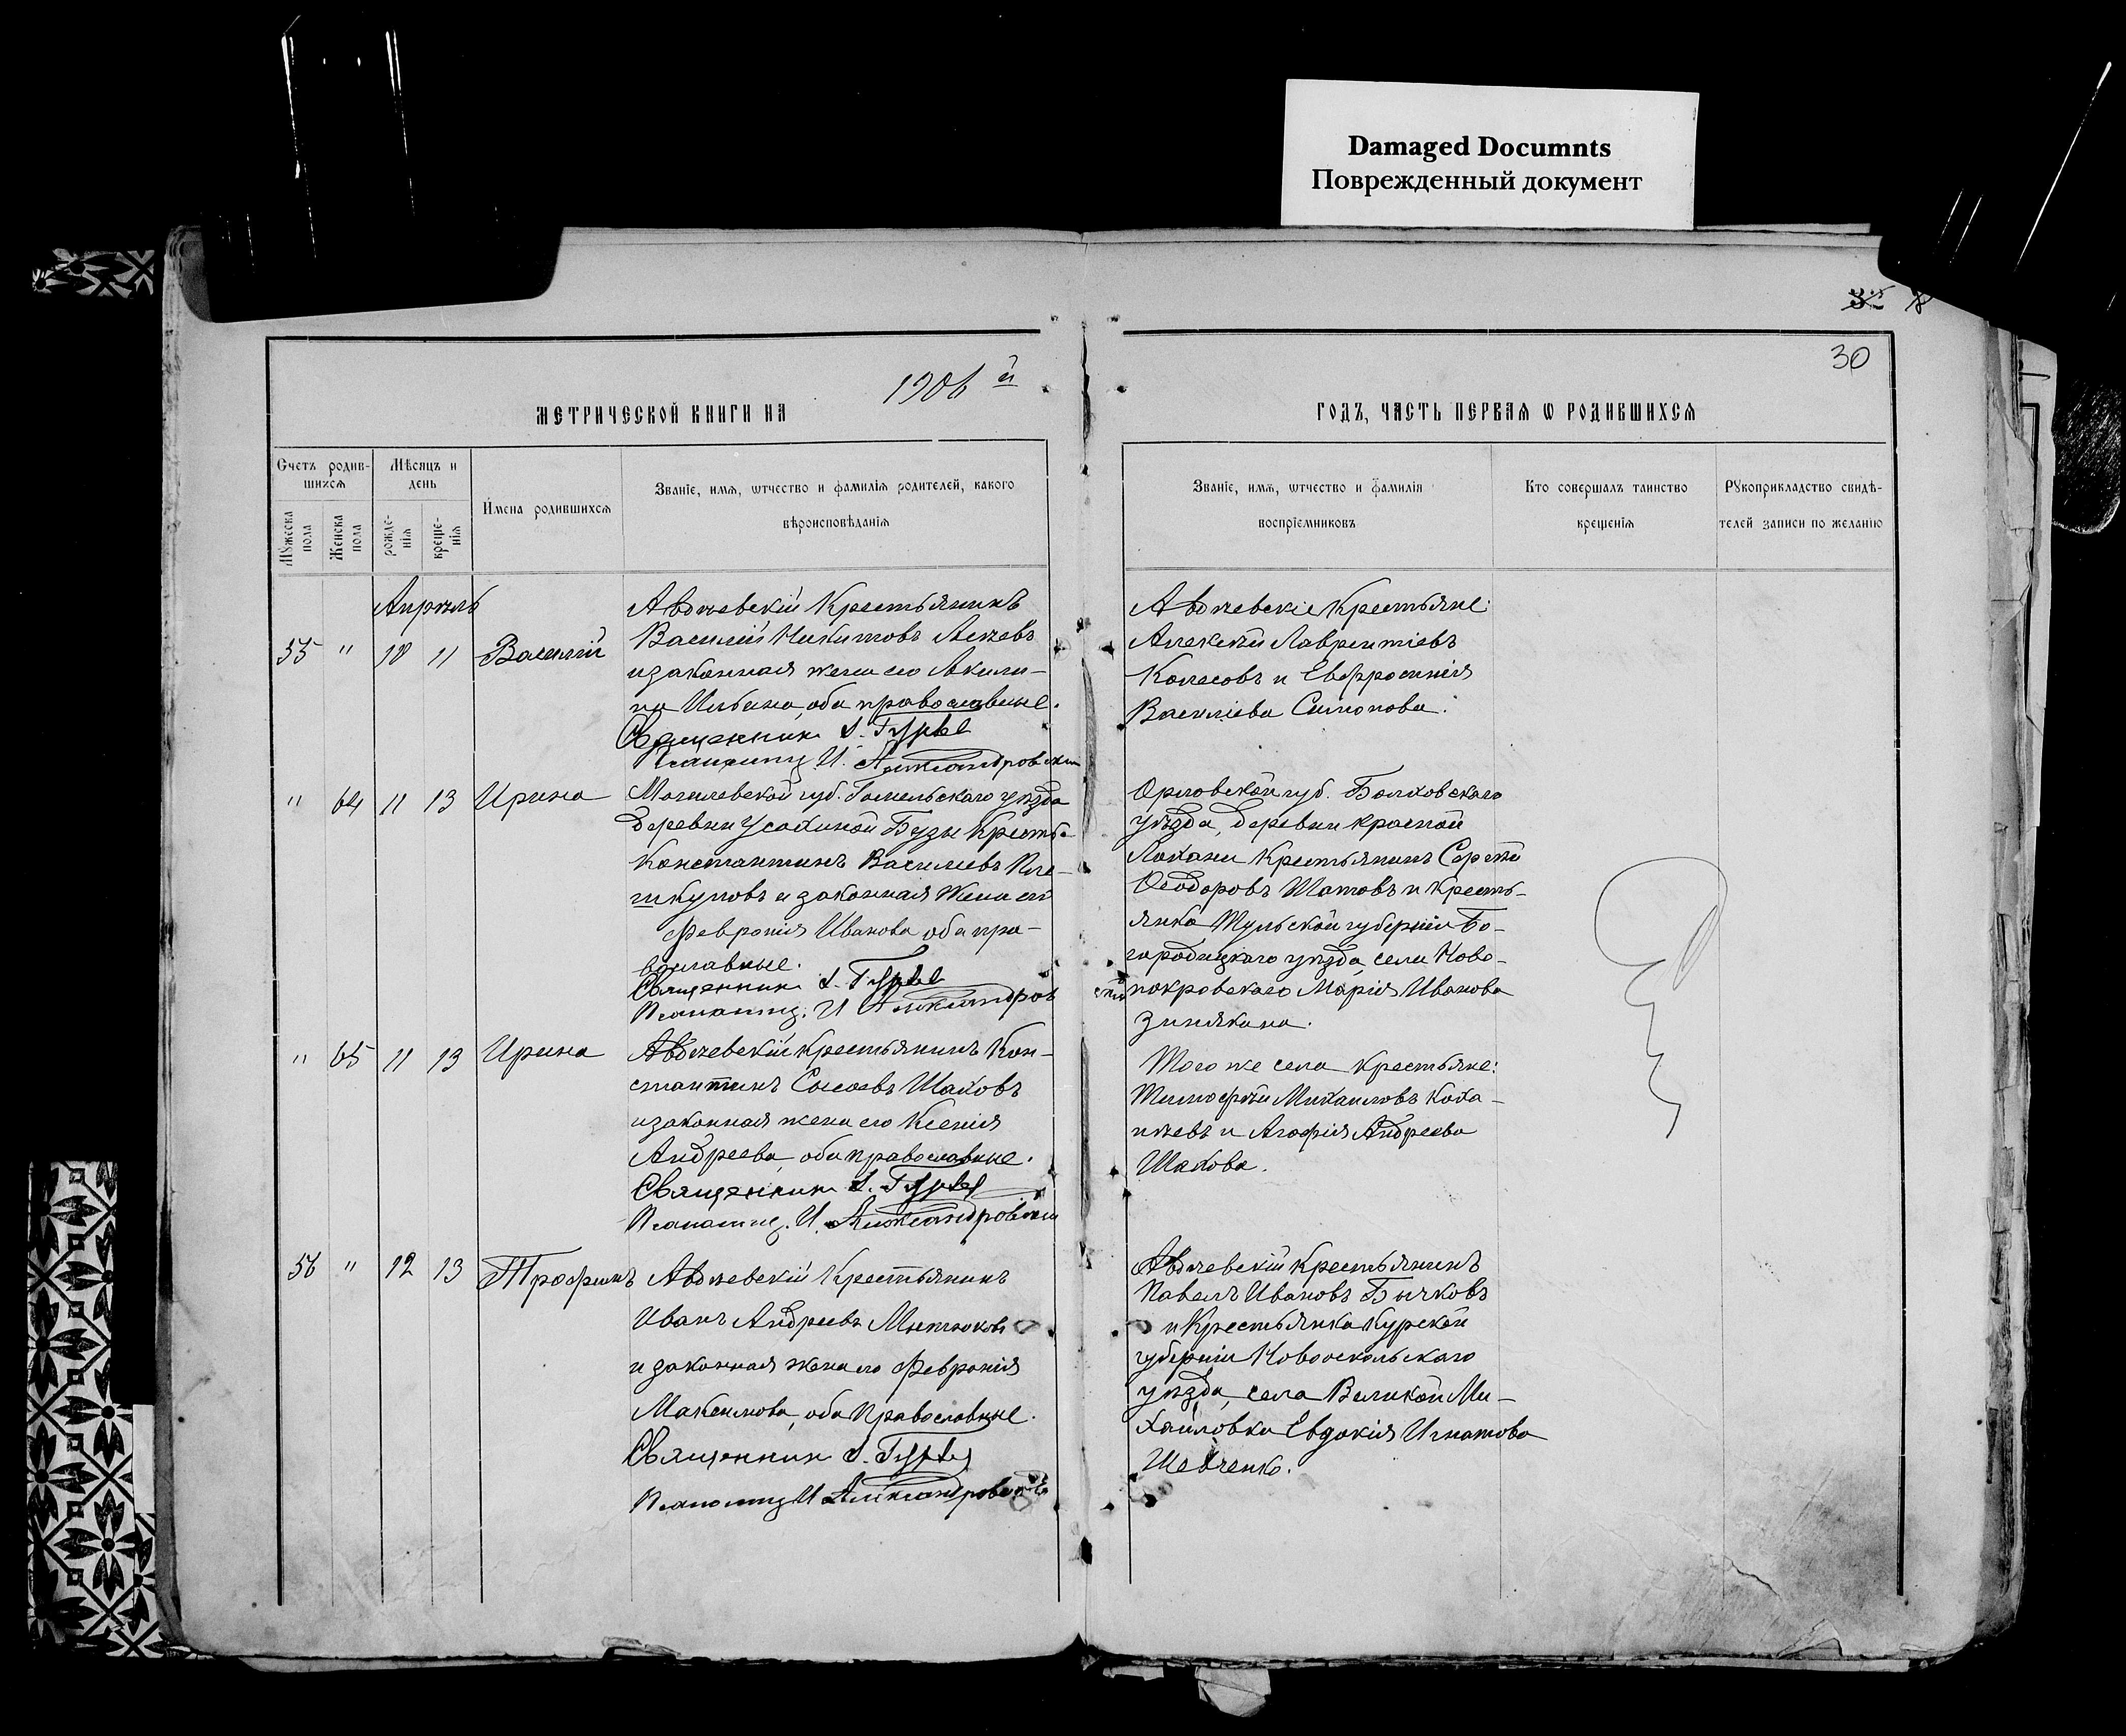 Damaged Documnts
Поврежденный документ
30
1906 й
МЕТРИЧЕСКОЙ КНИГИ НА
ГОДЪ, ЧАСТЬ ПЕРВАѦ Ѡ РОДИВШИХСѦ
Счетъ родив-
шихсѧ
Мѣсяцъ и
день
Мужеска
пола
Женска
пола
рожде-
нїѧ
креще-
нїѧ
Имена родившихсѧ
Званїе, имѧ, ѡтчество и фамилїѧ родителей, какого
вѣроисповѣданїѧ
Званїе, имѧ, ѡтчество и фамилїѧ
воспрїемниковъ
Кто совершалъ таинство
крещенїѧ
Рукоприкладство свидѣ-
телей записи по желанїю
Апрѣль
55 " 10 11 Василій
Авдѣевскій Крестьянинъ
Василій Никитовъ
и законная жена его Акили-
на Ильина, оба православные.
Священникъ
Псаломщ. И. Александровскій
Авдѣевскіе Крестьяне:
Алексѣй Лаврентіевъ
Колесовъ и Евфросинія
Василіева Симонова.
" 64 11 13 Ирина
Могилевской губ. Гомельскаго уѣзда
деревни Усохиной Буды Крест.
Константинъ Василіевъ Пле-
шкуновъ и законная жена его
Февронія Иванова оба пра-
вославные.
Священникъ
Псаломщ. И Александров
скій
Орловской губ. Болховскаго
уѣзда, деревни Красной
Крестьянинъ Сергѣй
Ѳеодоровъ Шатовъ и Кресть-
янка Тульской губерніи Бо-
городицкаго уѣзда, села Ново-
покровскаго Марія Иванова
Зинякина.
" 65 11 13 Ирина
Авдѣевскій Крестьянинъ Кон-
стантинъ Сысоевъ Шаховъ
и законная жена его Ксенія
Андреева, оба православные.
Священникъ
Псаломщ. И. Александровскій
Того же села Крестьяне:
Тимофѣй Михаиловъ Коха-
нѣевъ и Агафія Андреева
Шахова.
56 " 12 13 Трофимъ
Авдѣевскій Крестьянинъ
Иванъ Андреевъ Митюковъ
и законная жена его Февронія
Максимова, оба Православные.
Священникъ
Псаломщ И Александровскій
Авдѣевскій Крестьянинъ
Павелъ Ивановъ Бычковъ
и Крестьянка Курской
губерніи Новооскольскаго
уѣзда, села Великой Ми-
хайловки Евдокія Игнатова
Шевченко.